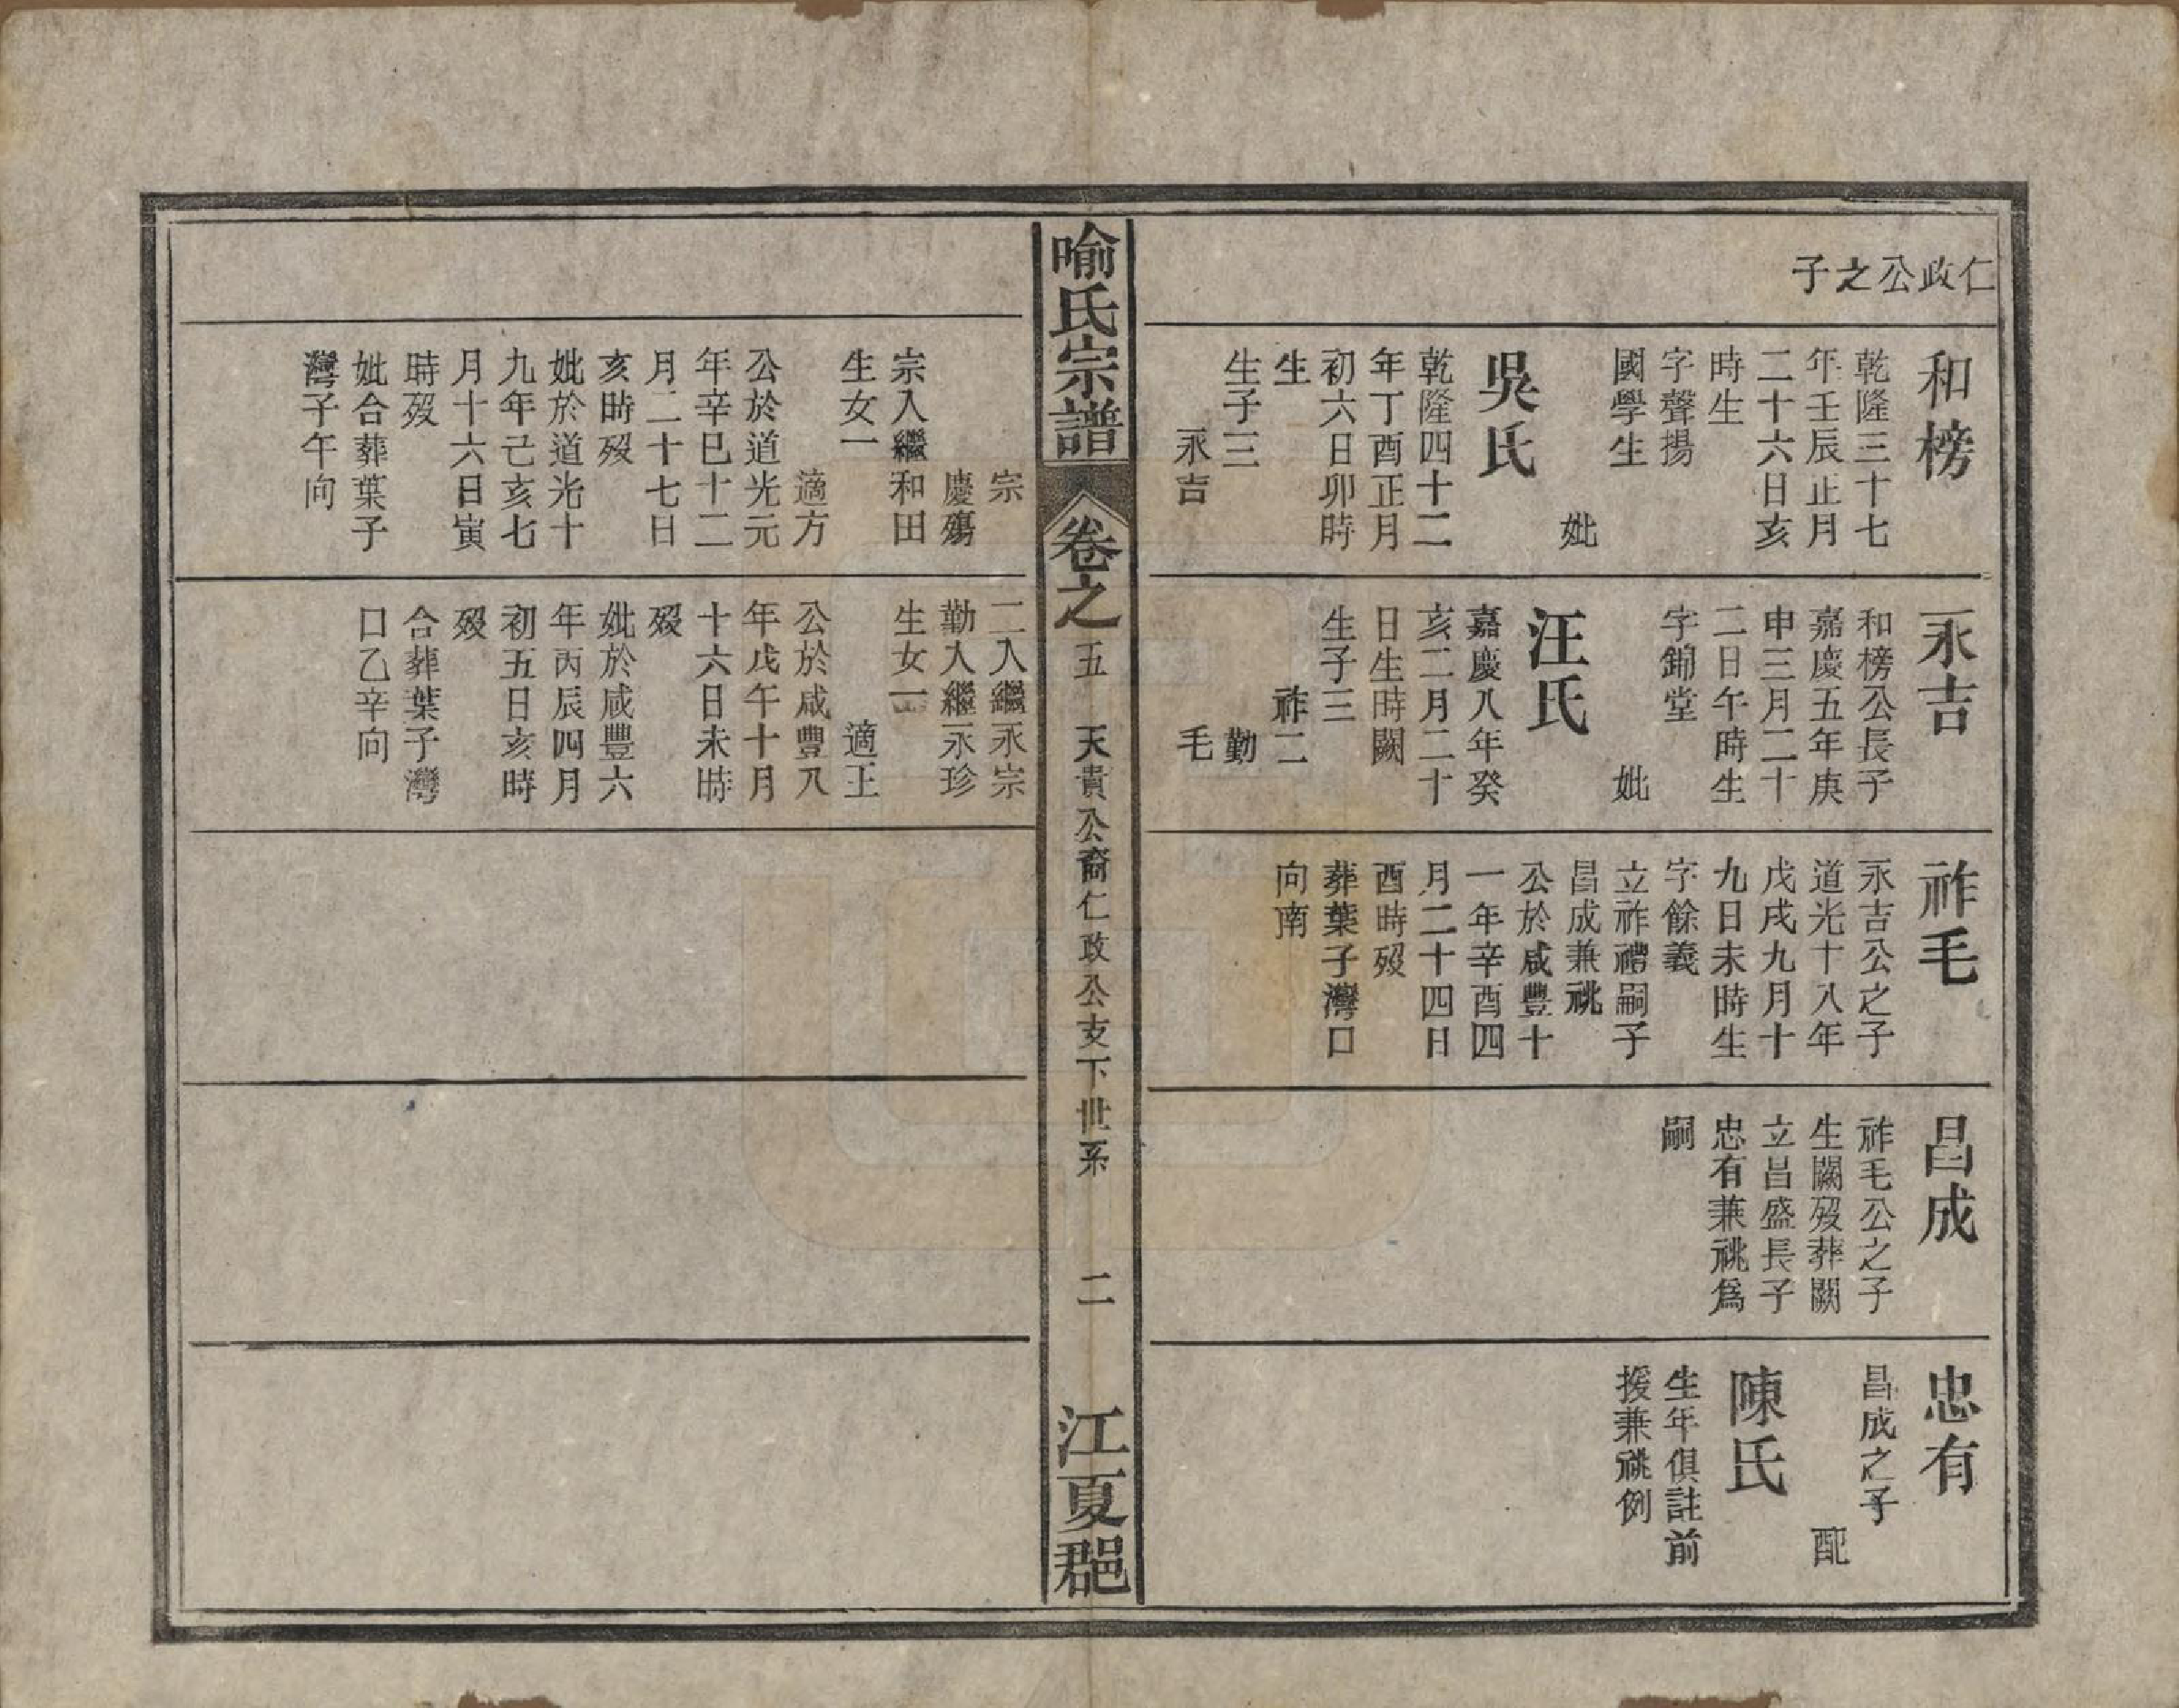 仁政公之子
和榜
乾隆三十七
年壬辰正月
二十六日亥
時生
字聲揚
國學生
妣
吳氏
乾隆四十二
年丁酉正月
初六日卯時
生
生子三
永吉
宗
慶殤
宗入繼和田
生女一
適方
公於道光元
年辛巳十二
月二十七日
亥時歿
妣於道光十
九年己亥七
月十六日寅
時歿
妣合葬葉子
灣子午向
永吉
和榜公長子
嘉慶五年庚
申三月二十
二日午時生
字錦堂
妣
汪氏
嘉慶八年癸
亥二月二十
日生時闕
生子三
祚二
勤
毛
二入繼永宗
勤入繼永珍
生女一
適王
公於咸豐八
年戊午十月
十六日未時
歿
妣於咸豐六
年丙辰四月
初五日亥時
歿
合葬葉子灣
口乙辛向
祚毛
永吉公之子
道光十八年
戊戌九月十
九日未時生
字餘義
立祚禮嗣子
昌成兼祧
公於咸豐十
一年辛酉四
月二十四日
酉時歿
葬葉子灣口
向南
昌成
祚毛公之子
生闕歿葬闕
立昌盛長子
忠有兼祧爲
嗣
忠有
昌成之子
配
陳氏
生年俱註前
援兼祧例
喻氏宗譜
卷之五
天貴公裔仁政公支下世系
二
江夏郡